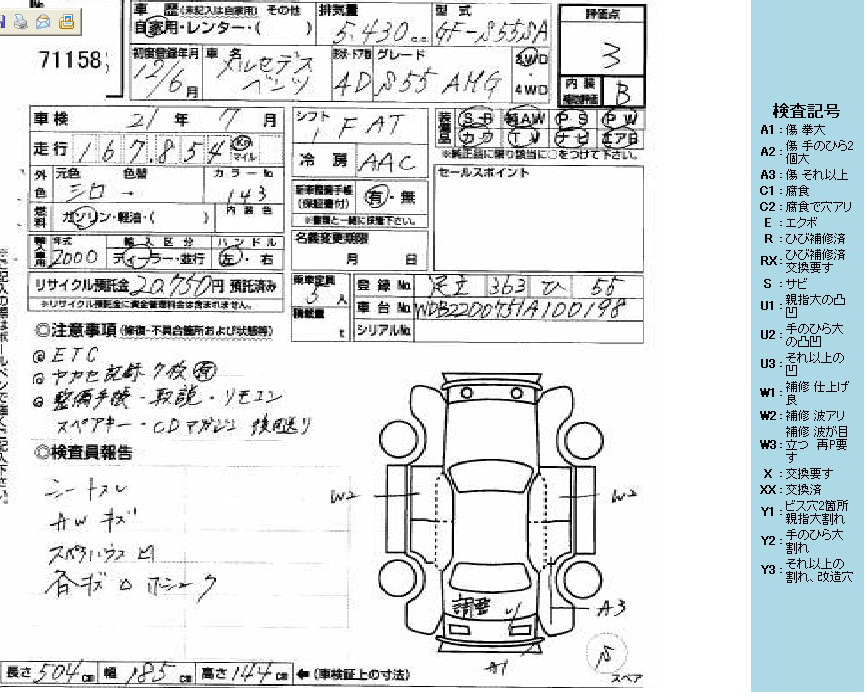 71158
車 歴 (未記入は自家用) その他
自家用・レンター・( )
排気量
5.430 c.c.
型 式
GF-S55SA
評価点
3
初度登録年月
12/6月
車 名
メルセデス
ベンツ
形状・ドア数
4D
グレード
S55 AMG
2WD
4WD
内 装
補助評価
B
車 検 21 年 7 月
シフト
F AT
装備品
S R 純AW P S P W
カワ T V ナビ エアB
※純正品に限り該当に○をつけて下さい。
走行 167,854 Km マイル
冷 房 AAC
外色
元色 色替
シロ →
カラーNo
143
セールスポイント
記録整備手帳
(保証書付)
有・無
※書類と一緒に採集下さい。
燃料
ガソリン・軽油・( )
内 装 色
輸入車用
年式
2000
輸 入 区 分
ディーラー・並行
ハ ン ド ル
左・右
名義変更期限
月 日
リサイクル預託金 20,750円 預託済み
※リサイクル預託金に資金管理料金は含まれません。
乗車定員
5人
積載量
t
登 録 No. 足立 363 ひ 55
車 台 No. WDB2200751A100198
シリアルNo.
◎注意事項 (修復・不具合箇所および状態等)
◎ ETC
◎ ヤナセ記録 7枚 有
◎ 整備手帳・取説・リモコン
スペアキー・CDマガジン 後日送り
◎検査員報告
シートスレ
AWキズ
凹
W2
W2
調整
U1
A3
A1
スペア
長さ 504 cm 幅 185 cm 高さ 144 cm ←(車検証上の寸法)
検査記号
A1 : 傷 拳大
A2 : 傷 手のひら2個大
A3 : 傷 それ以上
C1 : 腐食
C2 : 腐食で穴アリ
E : エクボ
R : ひび補修済
RX : ひび補修済 交換要す
S : サビ
U1 : 親指大の凸凹
U2 : 手のひら大の凸凹
U3 : それ以上の凹
W1 : 補修 仕上げ良
W2 : 補修 波アリ
W3 : 補修 波が目立つ 再P要す
X : 交換要す
XX : 交換済
Y1 : ビス穴2箇所 親指大割れ
Y2 : 手のひら大割れ
Y3 : それ以上の割れ、改造穴